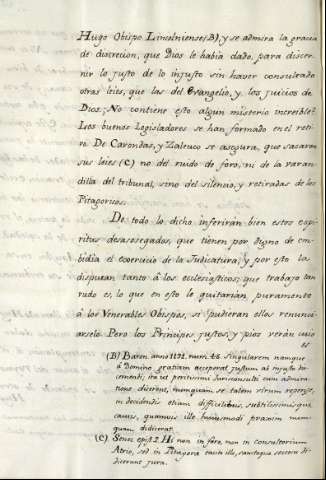 Hugo Obispo Lincolniense (B), y se admira la gracia
de discrecion, que Dios le habia dado, para discer-
nir lo justo de lo injusto sin haver consultado
otras leies, que las del Evangelio, y los juicios de
Dios; No contiene esto algun misterio increible?
Los buenos Legisladores se han formado en el reti-
ro. De Carondas, y Zaleuco se asegura, que sacaron
sus leies (C) no del ruido de foro, ni de la varan-
dilla del tribunal, sino del silencio, y retiradas de los
Pitagoricos.
De todo lo dicho inferirán bien estos espi-
ritus desasosegados, que tienen por digno de em-
bidia el exercicio de la Judicatura, y por esto la
disputan tanto á los eclesiasticos, que trabajo tan
rudo es, lo que en esto le quitarian, puramente
á los Venerables Obispos, si pudieran ellos renunci-
arselo. Pero los Principes justos, y pios verán cuio
es
(B) Baron. anno 1191. num. 48. singularem namque
á Domino gratiam acceperat justum ab injusto dis-
cernendi, ita ut peritissimi Jurisconsulti cum admira-
tione dicerent, numquam se talem virum reperisse,
in decidendis etiam difficilibus, subtilissimisque
causis, quamvis ille hujusmodi praxim num-
quam didicerat.
(C) Senec. epist. 2. Hi non in foro, non in consultorum
Atrio, sed in Pitagora tacito illo, sanctoque secessu di-
dicerunt jura.